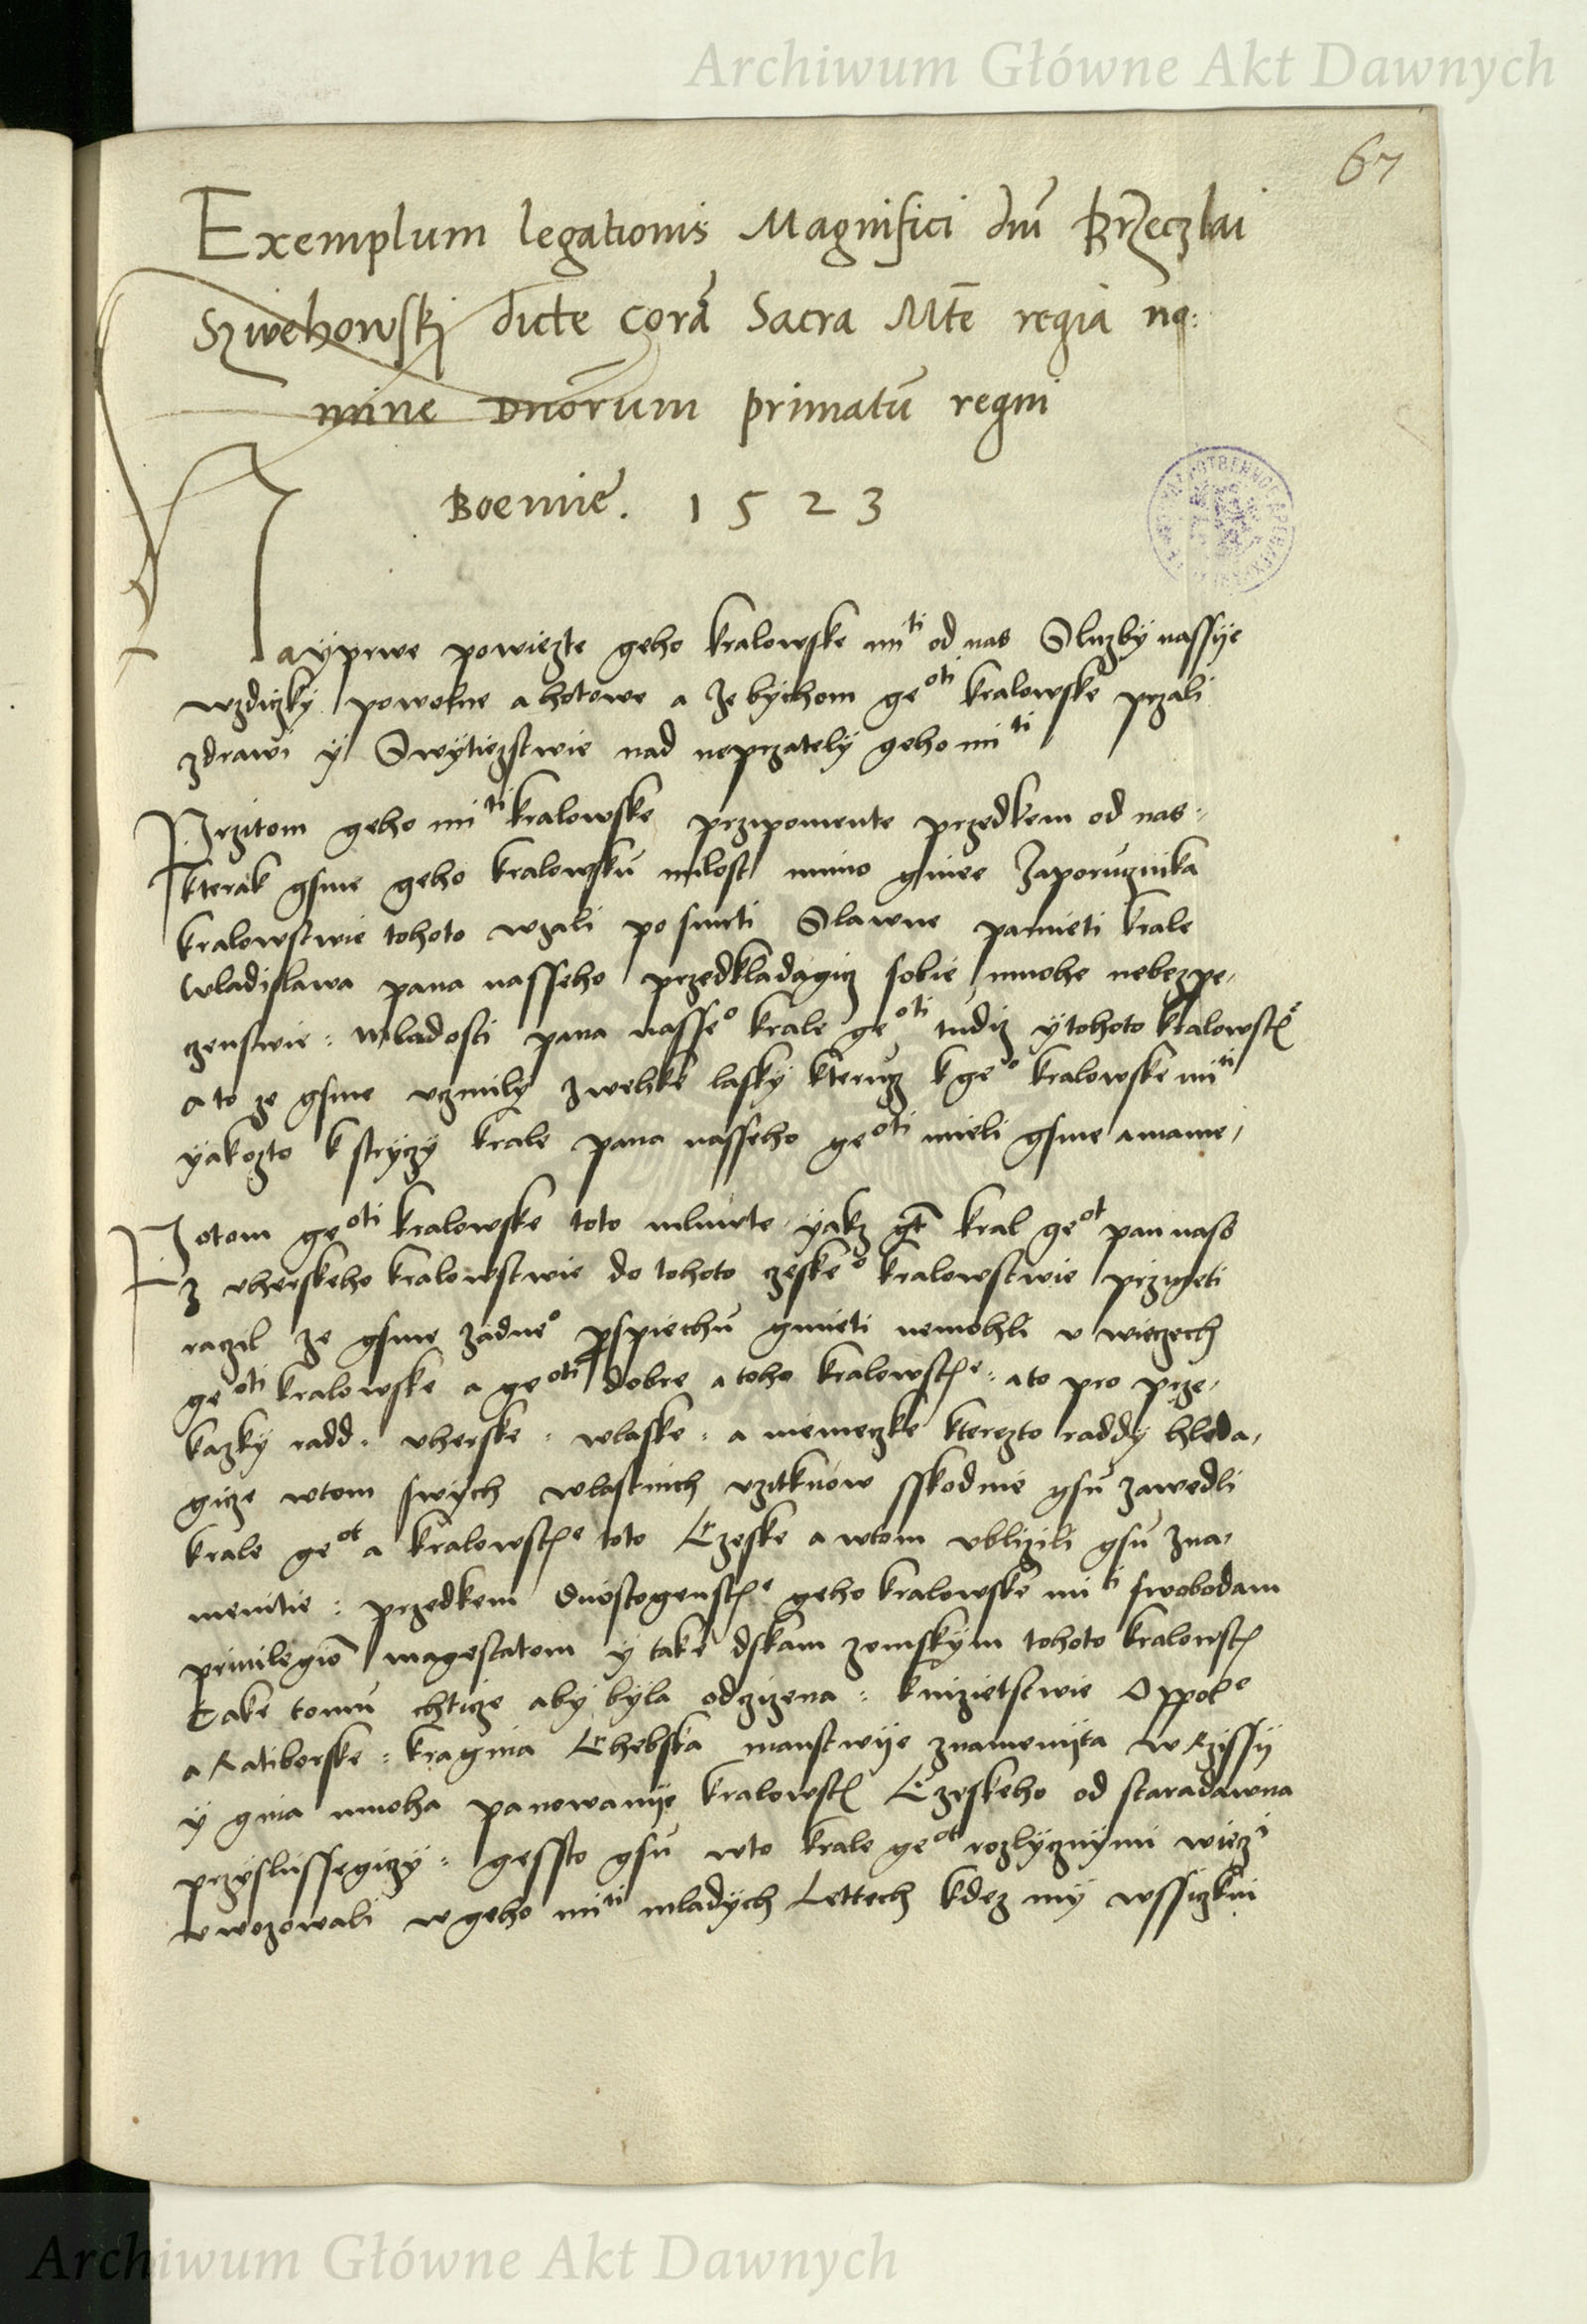 Archiwum Główne Akt Dawnych
67
Exemplum legationis Magnifici dni Brzeczlai
Szwehowskj dicte Corā Sacra Mte regia no:
mine Dnorum primatū regni
Boemie. 1523
Nayprwe powiezte geho kralowske miti od nas Sluzby nassye
wzdiczky powolne a hotowe a ze bychom geoti kralowske przali
zdrawi y Swytiezstwie nad neprzately geho miti
Przitom geho miti kralowske przipomente przedkem od nas
kterak gsme geho kralowsku milost mimo ginee Zaporucznika
kralowstwie tohoto wzali po smrti Slawne pamieti krale
Wladislawa pana nasseho przedkladagicz sobie mnohe nebezpe,
czenstwie: mladosti pana nasseo krale geoti tudiz y tohoto kralowste
a to ze gsme uczinily z welike lasky kteruz k geo kralowske miti
yakozto k stryczy krale pana nasseho geoti mieli gsme a mame,
Potom geoti kralowske toto mluwte yakz gt kral geot pan nass
z uherskeho kralowstwie do tohoto czeskeo kralowstwie przigeti
raczil ze gsme zadneo prospiechu gmieti nemohli v wieczech
geoti kralowske a geoti dobre a toho kralowste: a to pro prze,
kazky radd. uherske: wlaske: a niemeczke kterezto raddy hleda,
gicze wtom swych wlastnich uzitkuow sskodnie gsu zawedli
krale geot a kralowste toto Czeske a wtom ublizili gsu zna,
menitie: przedkem duostogenste geho kralowske miti swobodam
priuilegio magestatom y take dskam zemskym tohoto kralowst
Take tomu chticze aby byla odczizena: knizietstwie Oppole
a Ratiborske: kragina Chebska manstwije znamenijta w Rzissy
y gina mnoha panowanije kralowst Czeskeho od staradawna
przyslussegiczy: gessto gsu wto krale geot rozlycznymi wiecz
uwozowali w geho miti mladych Lettech kdez my wssiczkni
Archiwum Główne Akt Dawnych